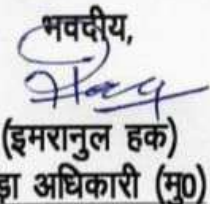 भवदीय,
(इमरानुल हक)
अधिकारी (मु0)